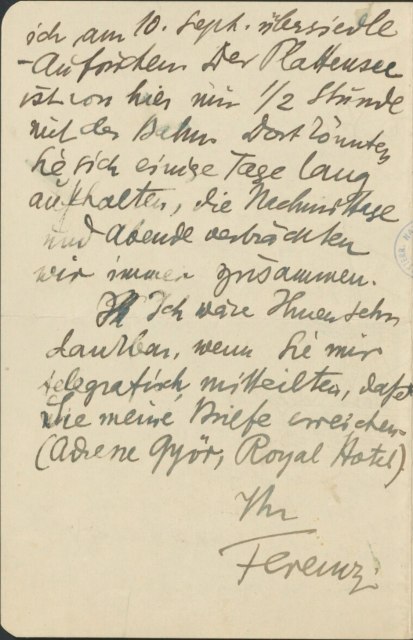 ich am 10. Sept. übersiedle
- Außerdem Der Plattensee
ist von hier nur 1/2 Stunde
mit der Bahn Dort könnten
Sie sich einige Tage lang
aufhalten, die Nachmittage
und Abende verbrächten
wir immer zusammen.
Ich wäre Ihnen sehr
dankbar, wenn Sie mir
telegrafisch mitteilten, daß
Sie meine Briefe erreichen.
(Adresse Győr, Royal Hotel)
Ihr
Ferenczi